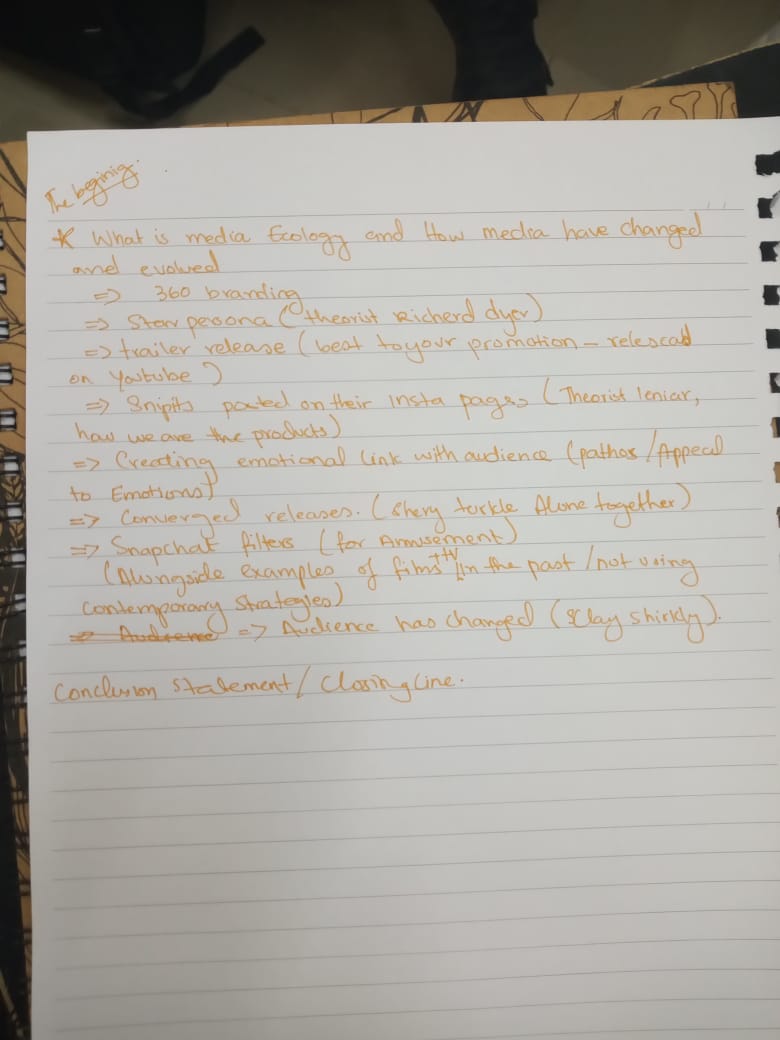 The begining.
* What is media Ecology and How media have changed
and evolved
=> 360 branding
=> Star persona (theorist Richerd dyer)
=> trailer release (beat to your promotion - relesead
on Youtube)
=> Snipits posted on their Insta pages (Theorist leniar,
how we are the products)
=> Creating emotional link with audience (pathos / Appeal
to Emotions)
=> Converged releases. (Shery turkle Alone together)
=> Snapchat filters (for Amusement)
(Alongside examples of films in the past / not using
contemporary Strategies)
=> Audience => Audience has changed (Clay shirkly).
Conclusion Statement / Closing Line.